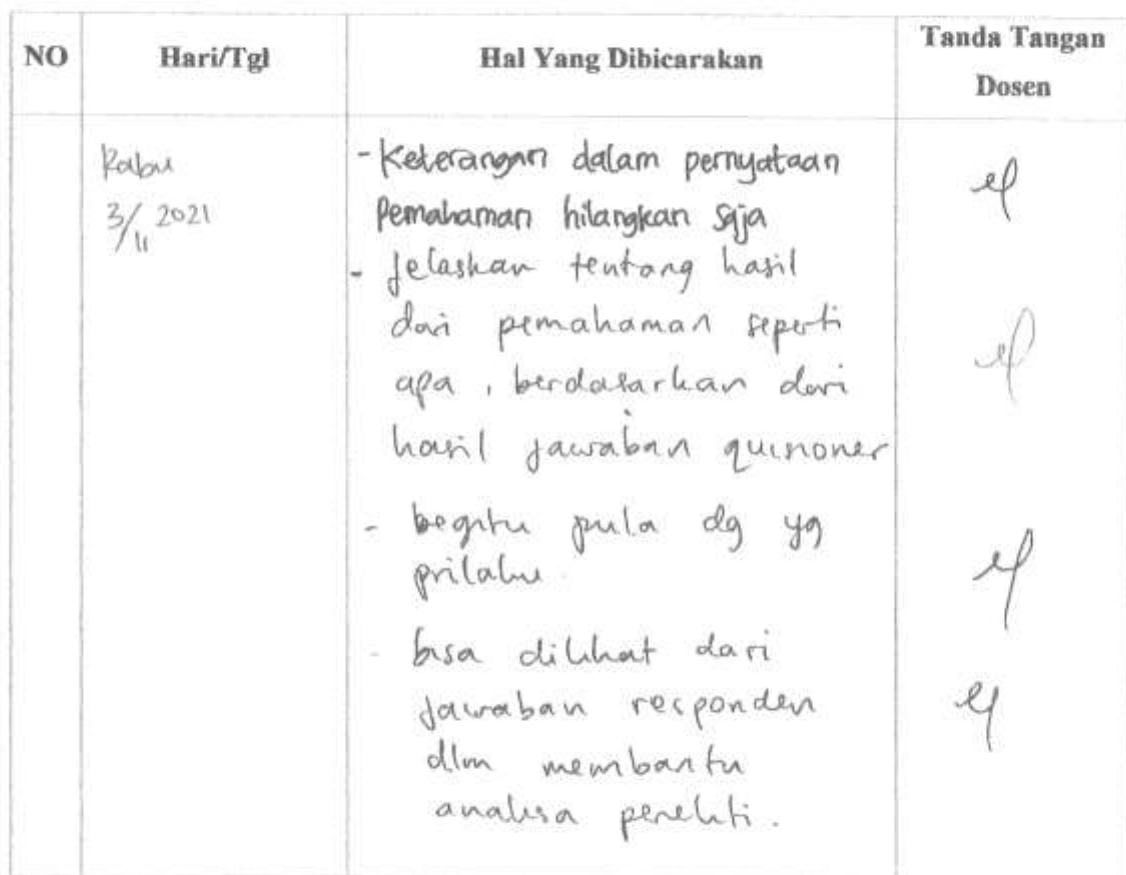 NO Hari/Tgl Hal Yang Dibicarakan Tanda Tangan Dosen
Rabu
3/11 2021
- Keterangan dalam pernyataan
Pemahaman hilangkan saja
- Jelaskan tentang hasil
dari pemahaman seperti
apa, berdasarkan dari
hasil jawaban quisioner
- begitu pula dg yg
prilaku.
- bisa dilihat dari
jawaban responden
dlm membantu
analisa peneliti.